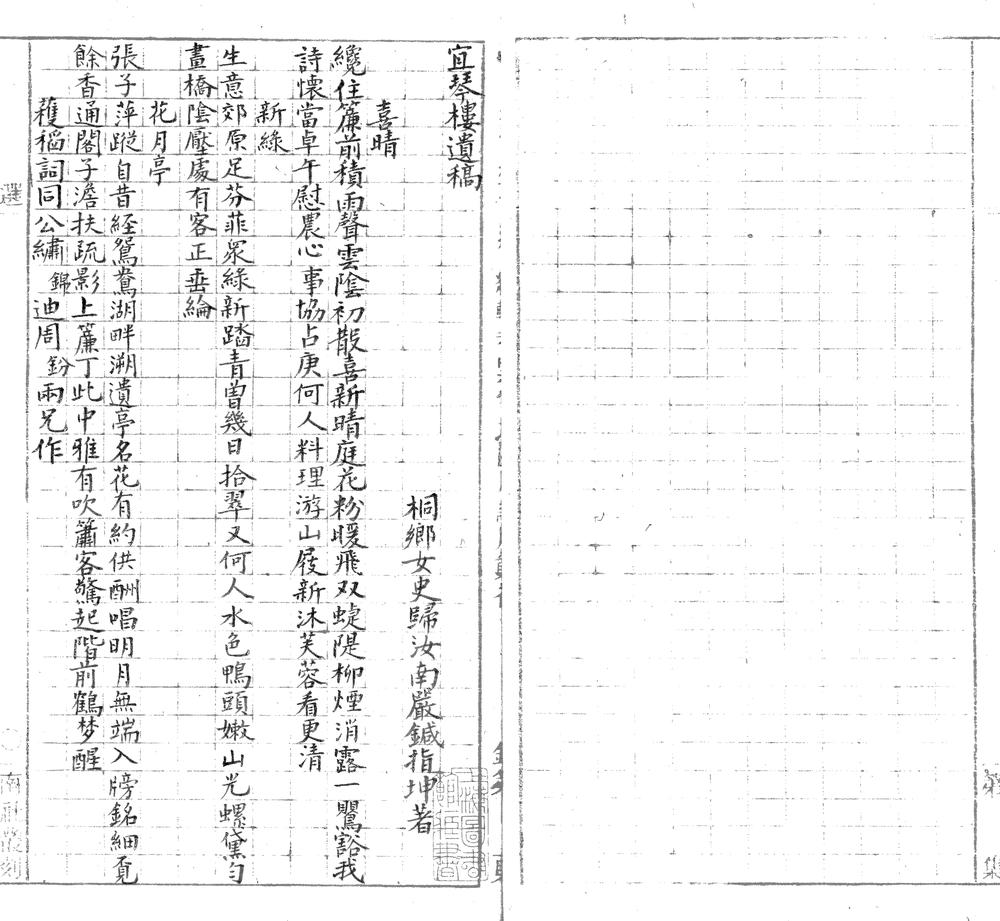 宜琴樓遺稿
桐鄉女史歸汝南嚴鍼指坤著
喜晴
纔住簾前積雨聲雲陰初散喜新晴庭花粉暖飛双蜨隄柳煙消露一鸎豁我
詩懷當卓午慰農心事協占庚何人料理游山屐新沐芙蓉看更清
新綠
生意郊原足芬菲眾綠新踏青曾幾日拾翠又何人水色鴨頭嫩山光螺黛勻
畫橋陰壓處有客正垂綸
花月亭
張子萍蹤自昔經鴛鴦湖畔溯遺亭名花有約供酬唱明月無端入牓銘細覔
餘香通閣子澹扶疏影上簾丁此中雅有吹簫客驚起階前鶴梦醒
穫稻詞同公繡錦迪周鈖兩兄作
選
南社叢刻
集